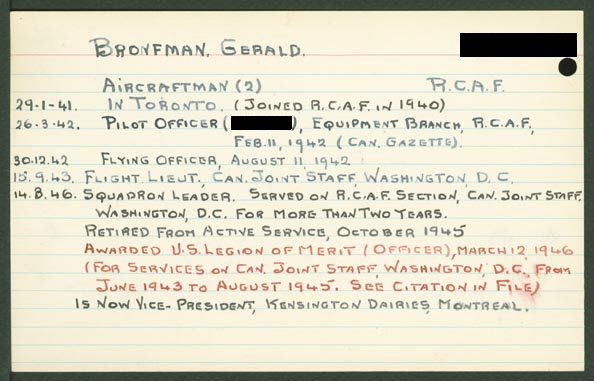 BRONFMAN, GERALD.
AIRCRAFTMAN (2) R.C.A.F.
29-1-41. IN TORONTO. (JOINED R.C.A.F. IN 1940)
26-3-42. PILOT OFFICER ( ), EQUIPMENT BRANCH, R.C.A.F.,
FEB. 11, 1942 (CAN. GAZETTE).
30.12.42 FLYING OFFICER, AUGUST 11, 1942
15.9.43. FLIGHT LIEUT., CAN. JOINT STAFF, WASHINGTON, D.C.
14.8.46. SQUADRON LEADER. SERVED ON R.C.A.F. SECTION, CAN. JOINT STAFF,
WASHINGTON, D.C. FOR MORE THAN TWO YEARS.
RETIRED FROM ACTIVE SERVICE, OCTOBER 1945
AWARDED U.S. LEGION OF MERIT (OFFICER), MARCH 12, 1946
(FOR SERVICES ON CAN. JOINT STAFF, WASHINGTON, D.C., FROM
JUNE 1943 TO AUGUST 1945. SEE CITATION IN FILE)
IS NOW VICE-PRESIDENT, KENSINGTON DAIRIES, MONTREAL.